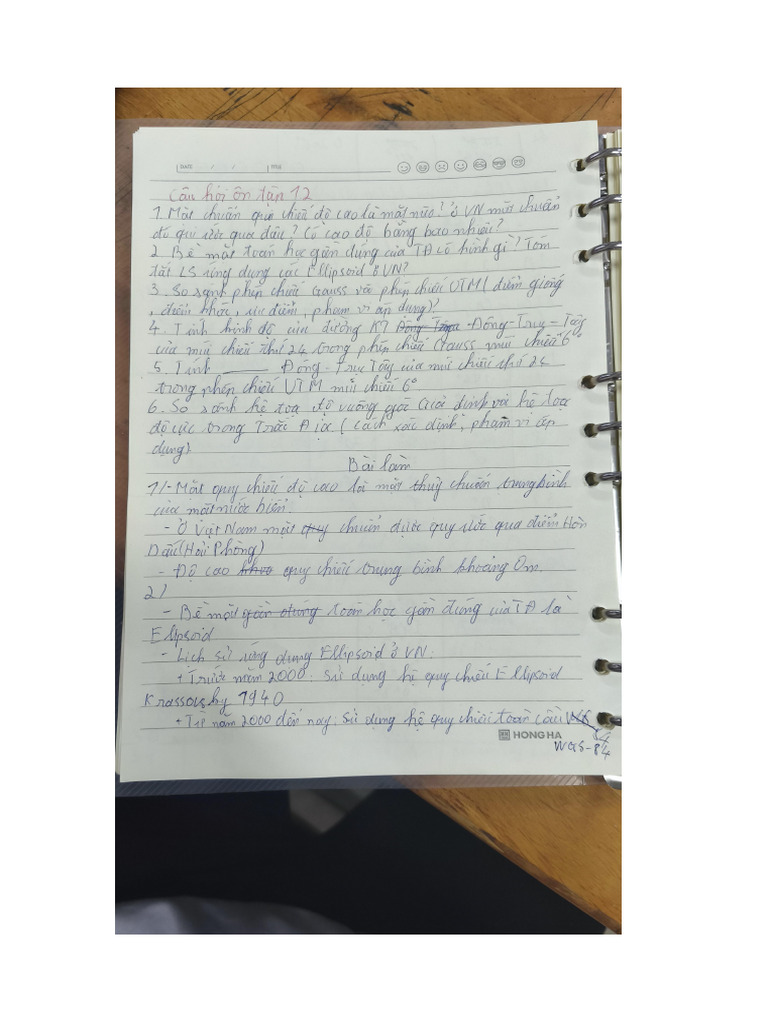 DATE / / TITLE
Câu hỏi ôn tập 12
1. Mặt chuẩn quy chiếu độ cao là mặt nào? Ở VN mặt chuẩn
đó quy ước qua đâu? Có cao độ bằng bao nhiêu?
2. Bề mặt toán học gần đúng của TĐ có hình gì? Tóm
tắt LS ứng dụng các Ellipsoid ở VN?
3. So sánh phép chiếu Gauss và phép chiếu UTM (điểm giống
, điểm khác, ưu điểm, phạm vi áp dụng)?
4. Tính kinh độ của đường KT Đông-Trục-Tây
của múi chiếu thứ 24 trong phép chiếu Gauss múi chiếu 6°
5. Tính ____ Đông-Trục Tây của múi chiếu thứ 24
trong phép chiếu UTM múi chiếu 6°
6. So sánh hệ toạ độ vuông góc Giả định và hệ toạ
độ cực trong Trắc Địa (cách xác định, phạm vi áp
dụng)
Bài làm
1/- Mặt quy chiếu độ cao là mặt thuỷ chuẩn trung bình
của mặt nước biển.
- Ở Việt Nam mặt quy chuẩn được quy ước qua điểm Hòn
Dấu (Hải Phòng)
- Độ cao quy chiếu trung bình khoảng 0m.
2/
- Bề mặt gần đúng toán học gần đúng của TĐ là
Ellipsoid
- Lịch sử ứng dụng Ellipsoid ở VN:
+ Trước năm 2000: sử dụng hệ quy chiếu Ellipsoid
Krassovsky 1940
+ Từ năm 2000 đến nay: sử dụng hệ quy chiếu toàn cầu
HONG HA
WGS-84